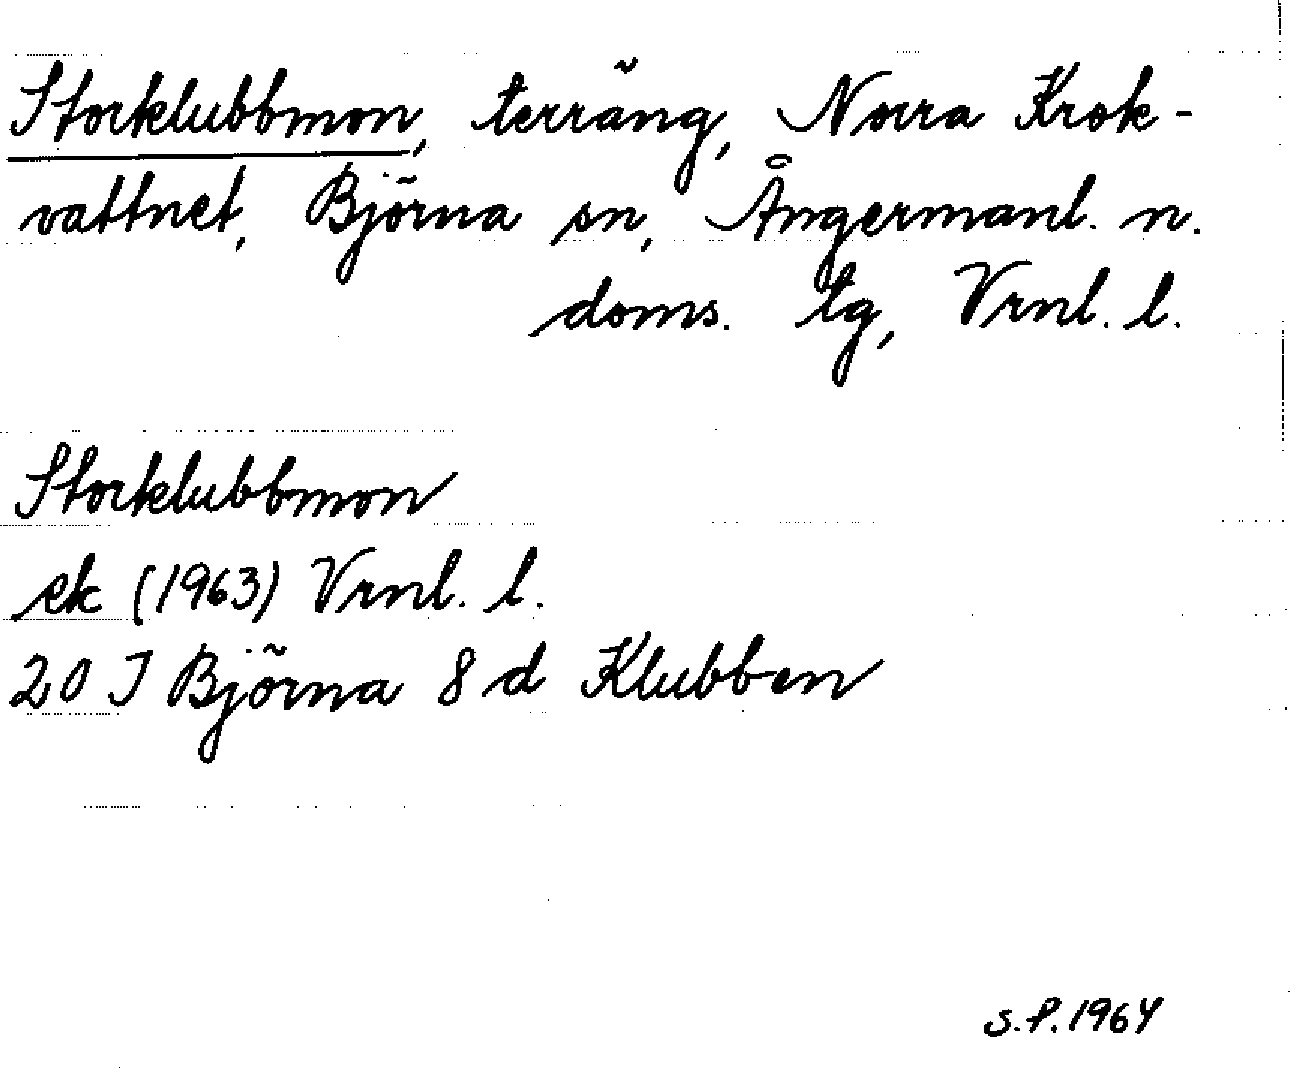 Storklubbmon, terräng, Norra Krok-
vattnet, Björna sn, Ångermanl. n.
doms. tg, Vrnl. l.
Storklubbmon
ek (1963) Vrnl. l.
20 J Björna 8 d Klubben
S.P. 1964